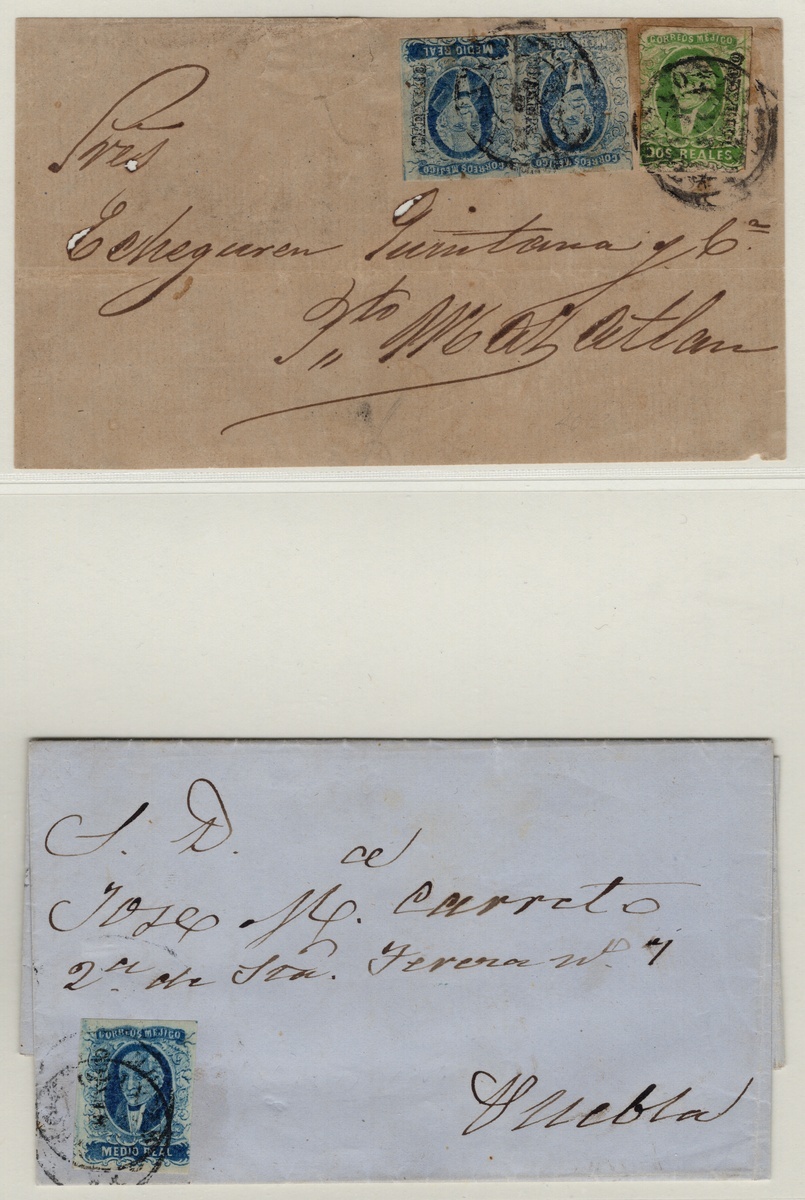 MEDIO REAL
CORREOS MEJICO
CORREOS MEJICO
CORREOS MEJICO
DOS REALES
Sres
Echeguren Quintana y Cª
Pto Mazatlan
S. D.
Jose M. Carreto
2ª de Sta. Teresa nº 7
CORREOS MEJICO
MEDIO REAL
Puebla